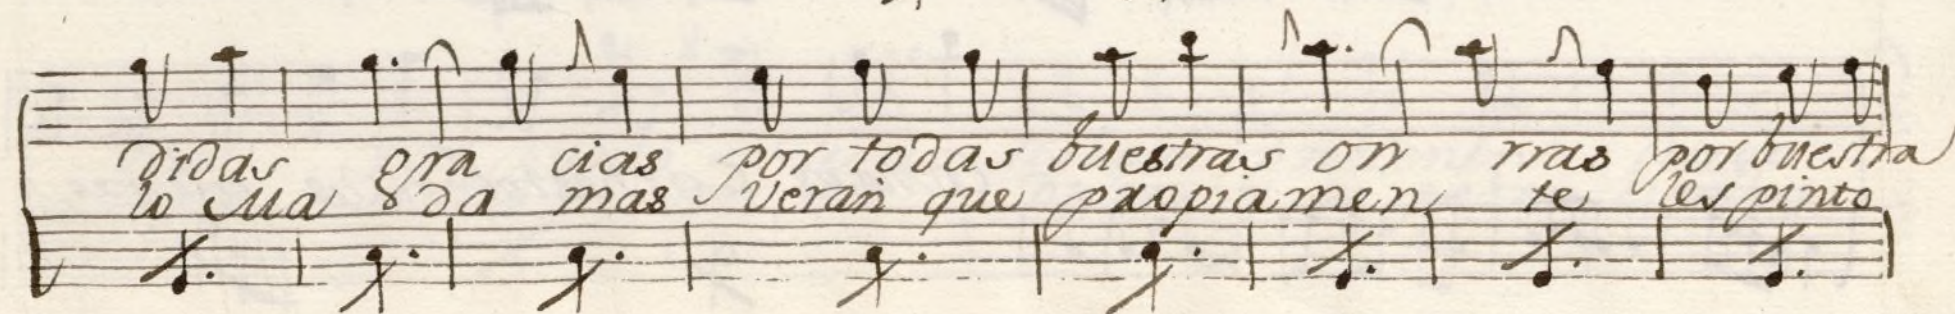 didas gra cias por todas buestras on rras por buestra
lo Ma da mas veran que propiamen te les pinto